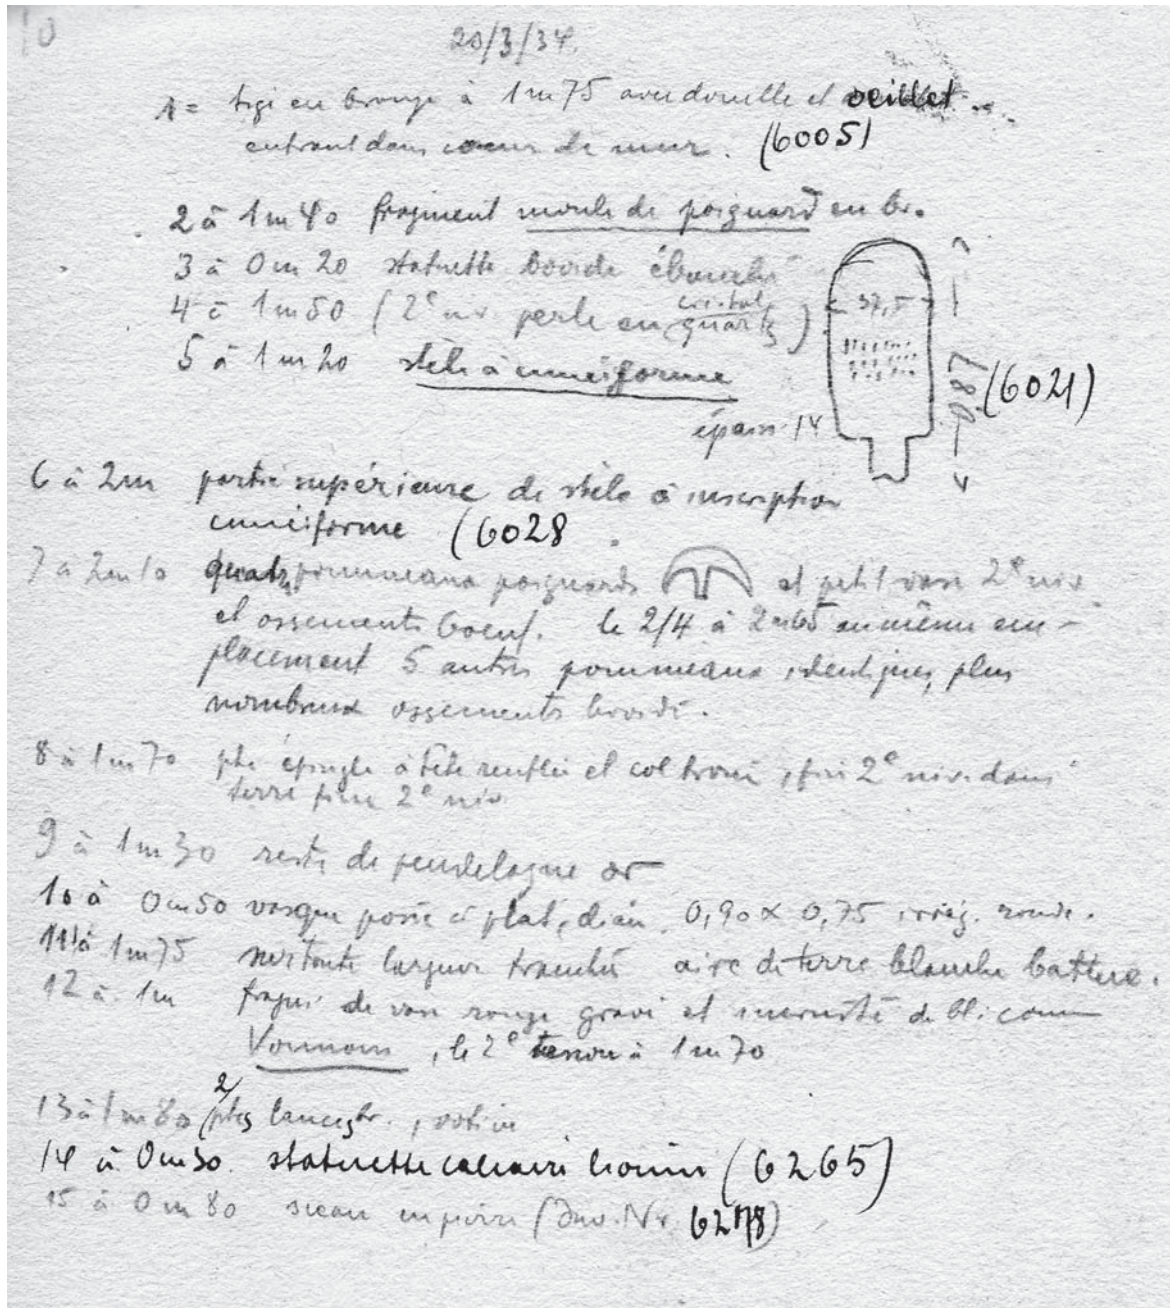 10
20/3/34
1 = tige en bronze à 1m75 avec douille et oeillet
entrant dans coeur de mur. (6005)
2 à 1m40 fragment moule de poignard en br.
3 à 0m20 statuette bovidé ébauche
4 à 1m50 (2e niv. perle en quartz cristal)
37,5
5 à 1m20 stèle à cuneiforme
087 (6021)
épais. 14
6 à 2m partie supérieure de stèle à inscription
cuneiforme (6028
7 à 2m10 quatre pommeaux poignards et petit vase 2e niv.
et ossements boeuf. le 2/4 à 2m65 au même em-
placement 5 autres pommeaux identiques, plus
nombreux ossements bovidé.
8 à 1m70 pte épingle à tête renflée et col troué, 2e niv. dans
terre fine 2e niv.
9 à 1m30 reste de pendeloque or
10 à 0m50 vasque posée à plat, diam. 0,90 x 0,75 irrég. ronde.
11 à 1m75 sur toute largeur tranchée aire de terre blanche battue.
12 à 1m fragm. de vase rouge gravé et incrusté de bl. comme
, le 2e tesson à 1m70
13 à 1m80 2 ptes lances br., votive
14 à 0m30. statuette calcaire (6265)
15 à 0m80 sceau en poire (Inv. Nr.